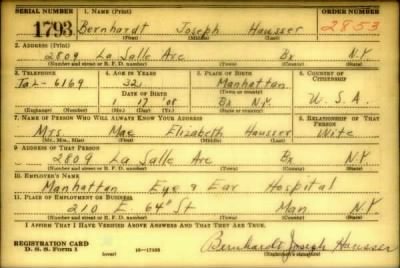 SERIAL NUMBER 1. NAME (Print) ORDER NUMBER
1793 Bernhardt Joseph Hausser 2853
(First) (Middle) (Last)
2. ADDRESS (Print)
2809 La Salle Ave Bx N.Y.
(Number and street or R. F. D. number) (Town) (County) (State)
3. TELEPHONE 4. AGE IN YEARS 5. PLACE OF BIRTH 6. COUNTRY OF CITIZENSHIP
Tal-6169 32 Manhattan
DATE OF BIRTH (Town or county)
1 17 '08 Bx N.Y. U.S.A.
(Exchange) (Number) (Mo.) (Day) (Yr.) (State or country)
7. NAME OF PERSON WHO WILL ALWAYS KNOW YOUR ADDRESS 8. RELATIONSHIP OF THAT PERSON
Mrs. Mae Elizabeth Hausser Wife
(Mr., Mrs., Miss) (First) (Middle) (Last)
9. ADDRESS OF THAT PERSON
2809 La Salle Ave Bx N.Y.
(Number and street or R. F. D. number) (Town) (County) (State)
10. EMPLOYER'S NAME
Manhattan Eye & Ear Hospital
11. PLACE OF EMPLOYMENT OR BUSINESS
210 E. 64th St Man N.Y.
(Number and street or R. F. D. number) (Town) (County) (State)
I AFFIRM THAT I HAVE VERIFIED ABOVE ANSWERS AND THAT THEY ARE TRUE.
REGISTRATION CARD
D. S. S. Form 1 (over) Bernhardt Joseph Hausser
(Registrant's signature)